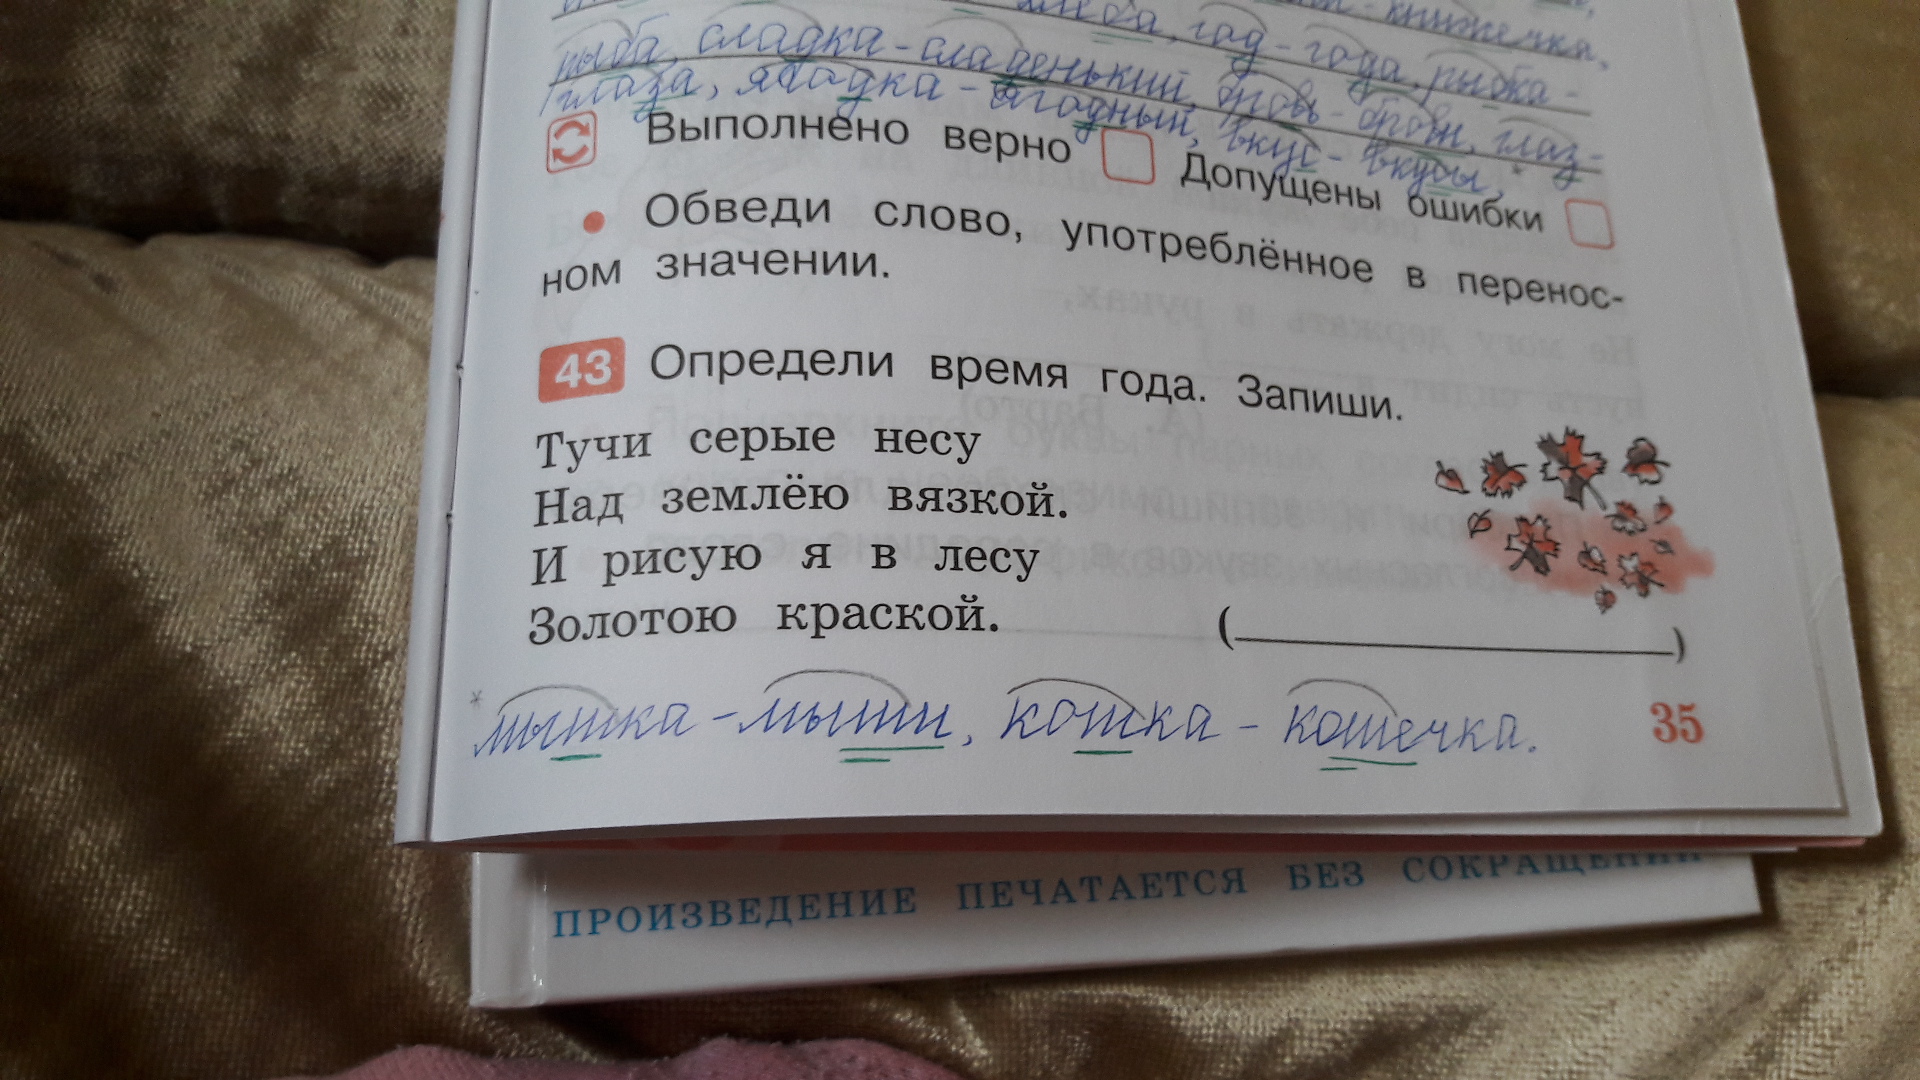 книжечка,
хлеба, год - года, рыбка -
рыба, сладка - сладенький, бровь - брови, глаз -
глаза, ягодка - ягодный, вкус - вкусы,*
Выполнено верно Допущены ошибки
• Обведи слово, употреблённое в перенос-
ном значении.
43 Определи время года. Запиши.
Тучи серые несу
Над землёю вязкой.
И рисую я в лесу
Золотою краской. (____________)
* мышка - мыши, кошка - кошечка.
35
ПРОИЗВЕДЕНИЕ ПЕЧАТАЕТСЯ БЕЗ СОКРАЩЕНИЙ